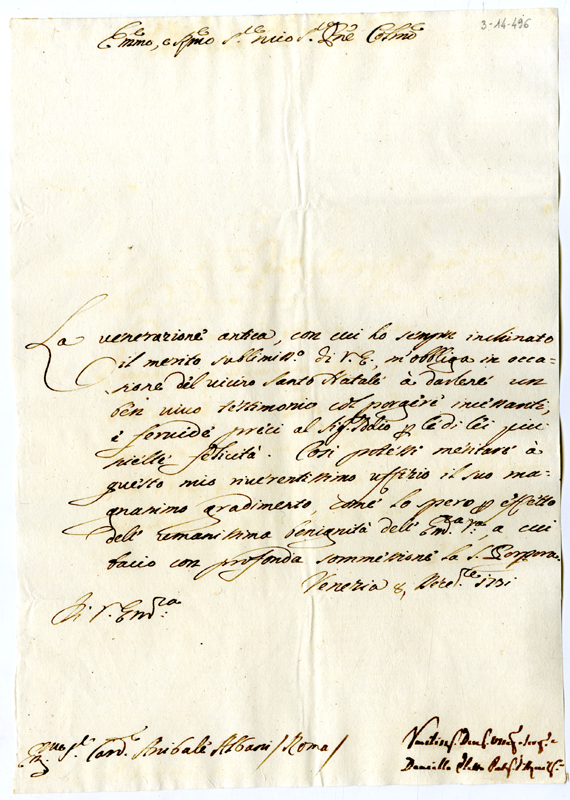 3-14-496
Emmo, e Rmo Sr. mio Sr. Pne Colmo
La venerazione antica, con cui ho sempre inchinato
il merito sublimiss.o di V.E., m'obbliga in occa=
sione del vicino Santo Natale à darlene un
ben vivo testimonio col porgere incessanti,
e fervide preci al Sig.r Iddio p le di lei più
scielte felicità. Così potessi meritare à
questo mio riverentissimo uffizio il suo ma=
gnanimo gradimento, come lo spero p effetto
dell' umanissima benignità dell' Em.za V.ra, a cui
bacio con profonda sommessione la S. Porpora.
Venezia 8, Xbre 1731
Di V. Em.za
Sr. Card. Anibale Albani / Roma /
Daniello